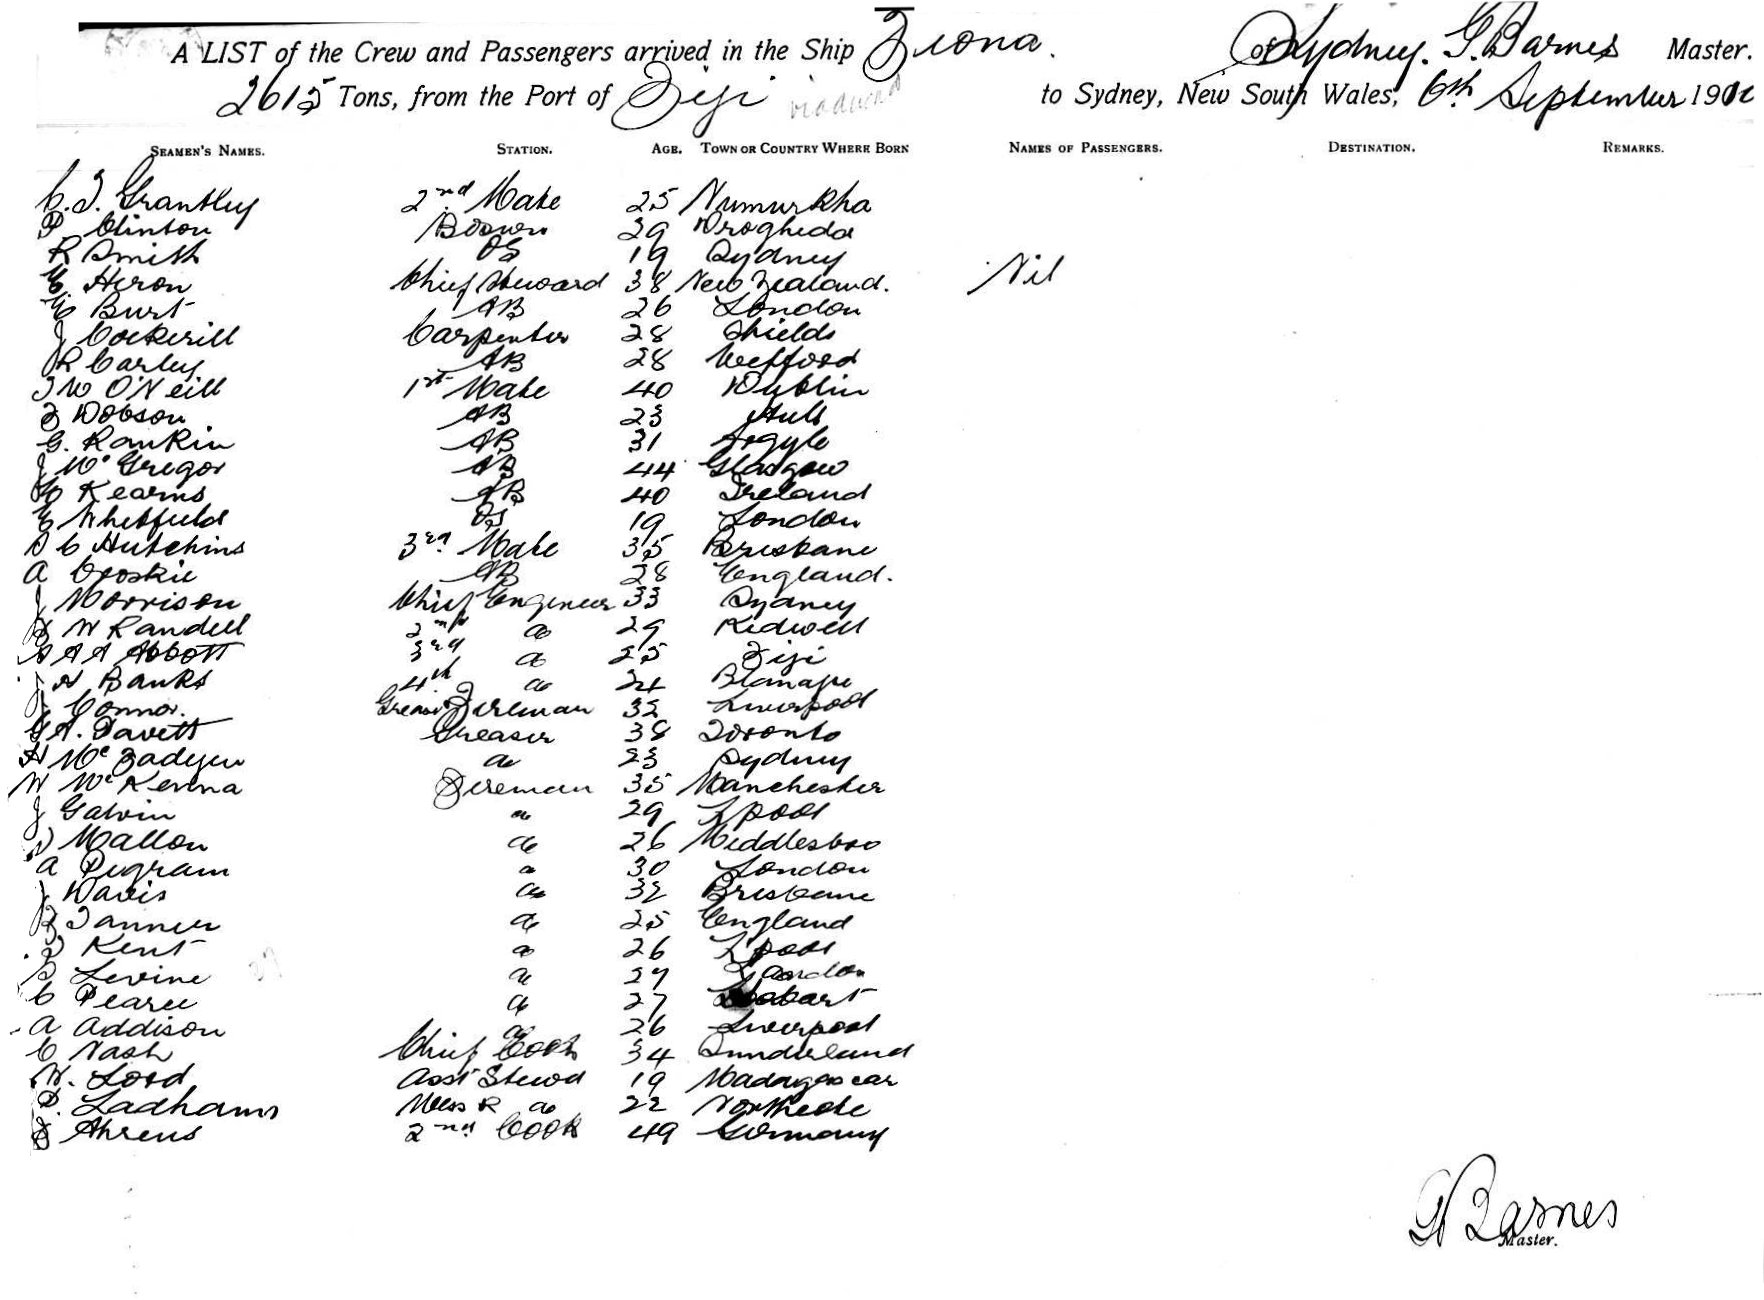 A LIST of the Crew and Passengers arrived in the Ship Fiona. of Sydney. G. Barnes Master.
2615 Tons, from the Port of Fiji to Sydney, New South Wales, 6th September 191
SEAMEN'S NAMES. STATION. AGE. TOWN OR COUNTRY WHERE BORN NAMES OF PASSENGERS. DESTINATION. REMARKS.
C. J. Grantley 2nd Mate 25 Numurkha
P Clinton Bosun 29 Drogheda
R Smith OS 19 Sydney
E Heron Chief Steward 38 New Zealand. Nil
Burt AB 26 London
J Cockerill Carpenter 28 Shields
R Carley AB 28 Wexford
J W O'Neill 1st Mate 40 Dublin
F Dobson AB 23 Hull
G. Rankin AB 31 Argyle
J McGregor AB 44 Glasgow
Kearns AB 40 Ireland
E Whetfield OS 19 London
S C Hutchins 3rd Mate 35 Brisbane
A Croskie AB 28 England.
J Morrison Chief Engineer 33 Sydney
W Randell 2nd do 29 Kidwell
S A A Abbott 3rd do 25 Fiji
J H Banks 4th do 24
J Connor. Greaser Fireman 32 Liverpool
G A. Davett Greaser 38 Toronto
H McFadyen do 23 Sydney
W McKenna Fireman 35 Manchester
J Galvin do 29 L'pool
J Mallon do 26 Middlesboro
A Pegram do 30 London
J Davis do 32 Brisbane
Tanner do 25 England
J Kent do 26 L'pool
S Levine do 27 London
C Pearce do 27 Hobart
A Addison do 26 Liverpool
C Nash Chief Cook 34 Sunderland
W. Lord Asst Stewd 19 Madagascar
P. Ladhams Mess R do 22 Northcote
Ahrens 2nd Cook 49 Germany
G Barnes
Master.